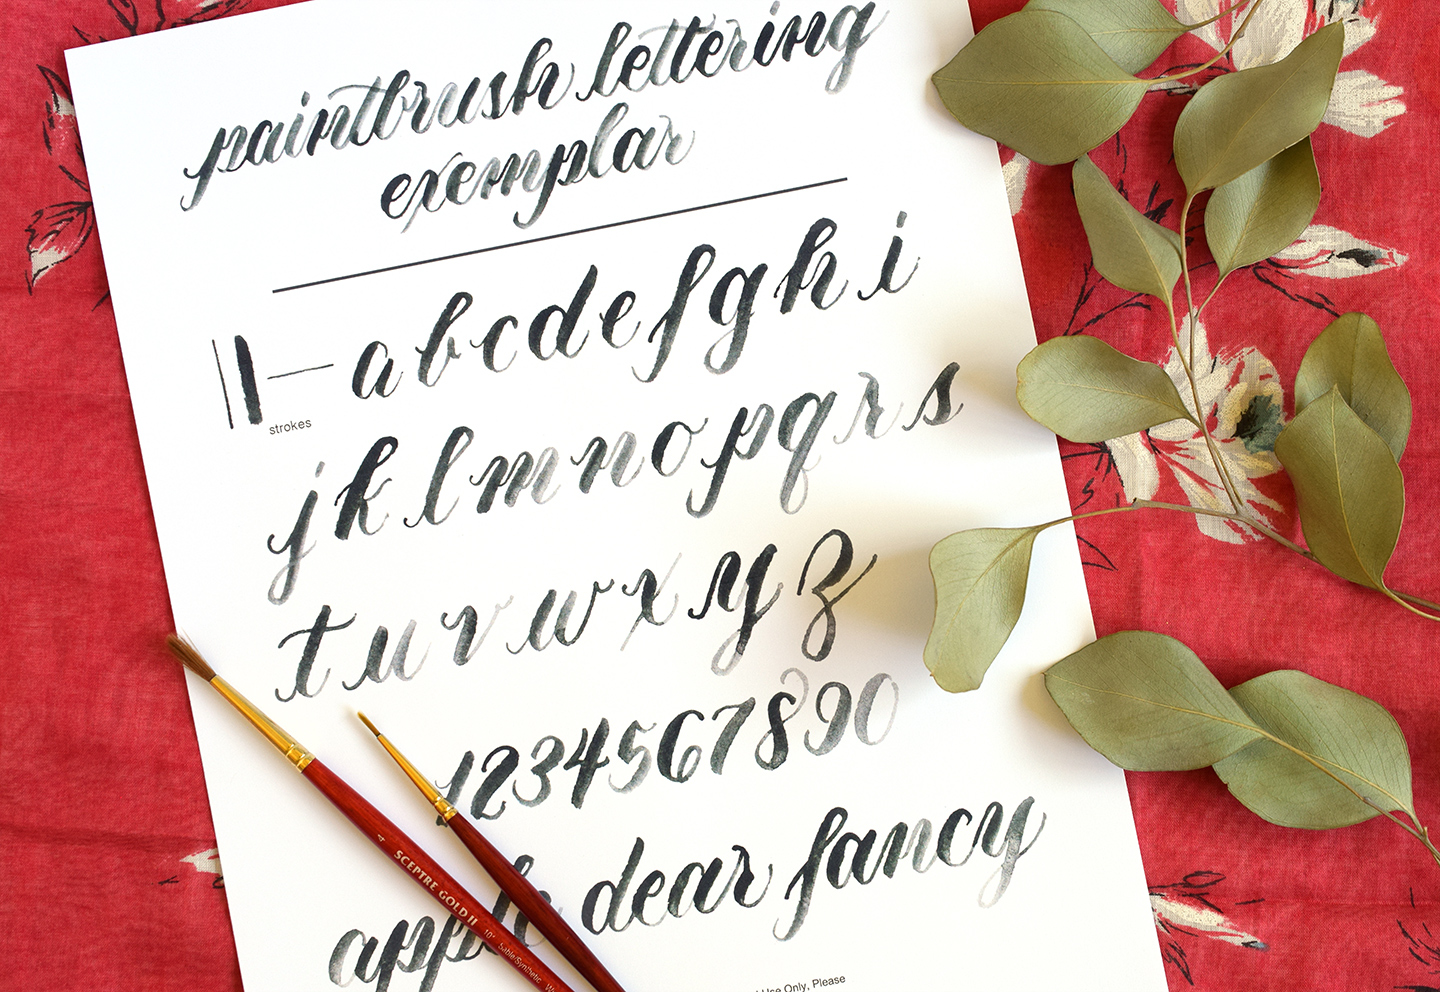 paintbrush lettering
exemplar
a b c d e f g h i
strokes
j k l m n o p q r s
t u v w x y z
1 2 3 4 5 6 7 8 9 0
apple dear fancy
Use Only, Please
4 SCEPTRE GOLD II 10" Sable/Synthetic